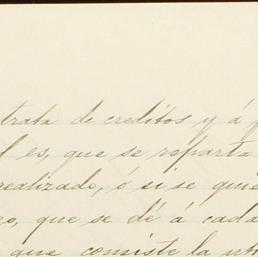 trata de creditos y á
l es, que se reparta
realizado, ó si se quie
ro, que se dé á cada
que consiste la